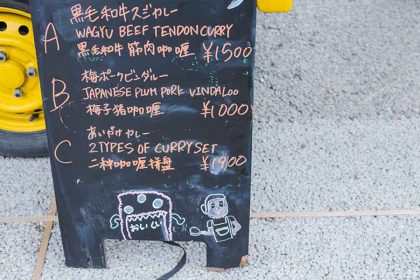 黒毛和牛スジカレー
A WAGYU BEEF TENDON CURRY
黒毛和牛筋肉咖喱 ¥1500
梅ポークビンダルー
B JAPANESE PLUM PORK VINDALOO
梅子猪咖喱 ¥1000
あいがけカレー
C 2TYPES OF CURRY SET
二种咖喱拼盘 ¥1900
おいしい